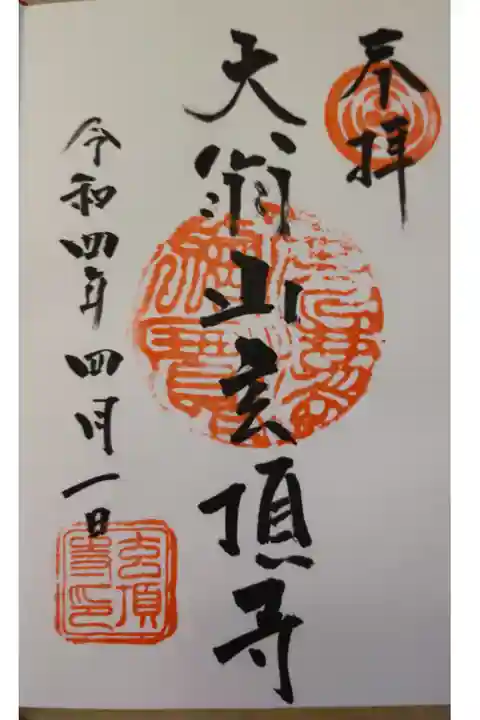 奉拝
天翁山玄頂寺
令和四年四月一日
玄頂